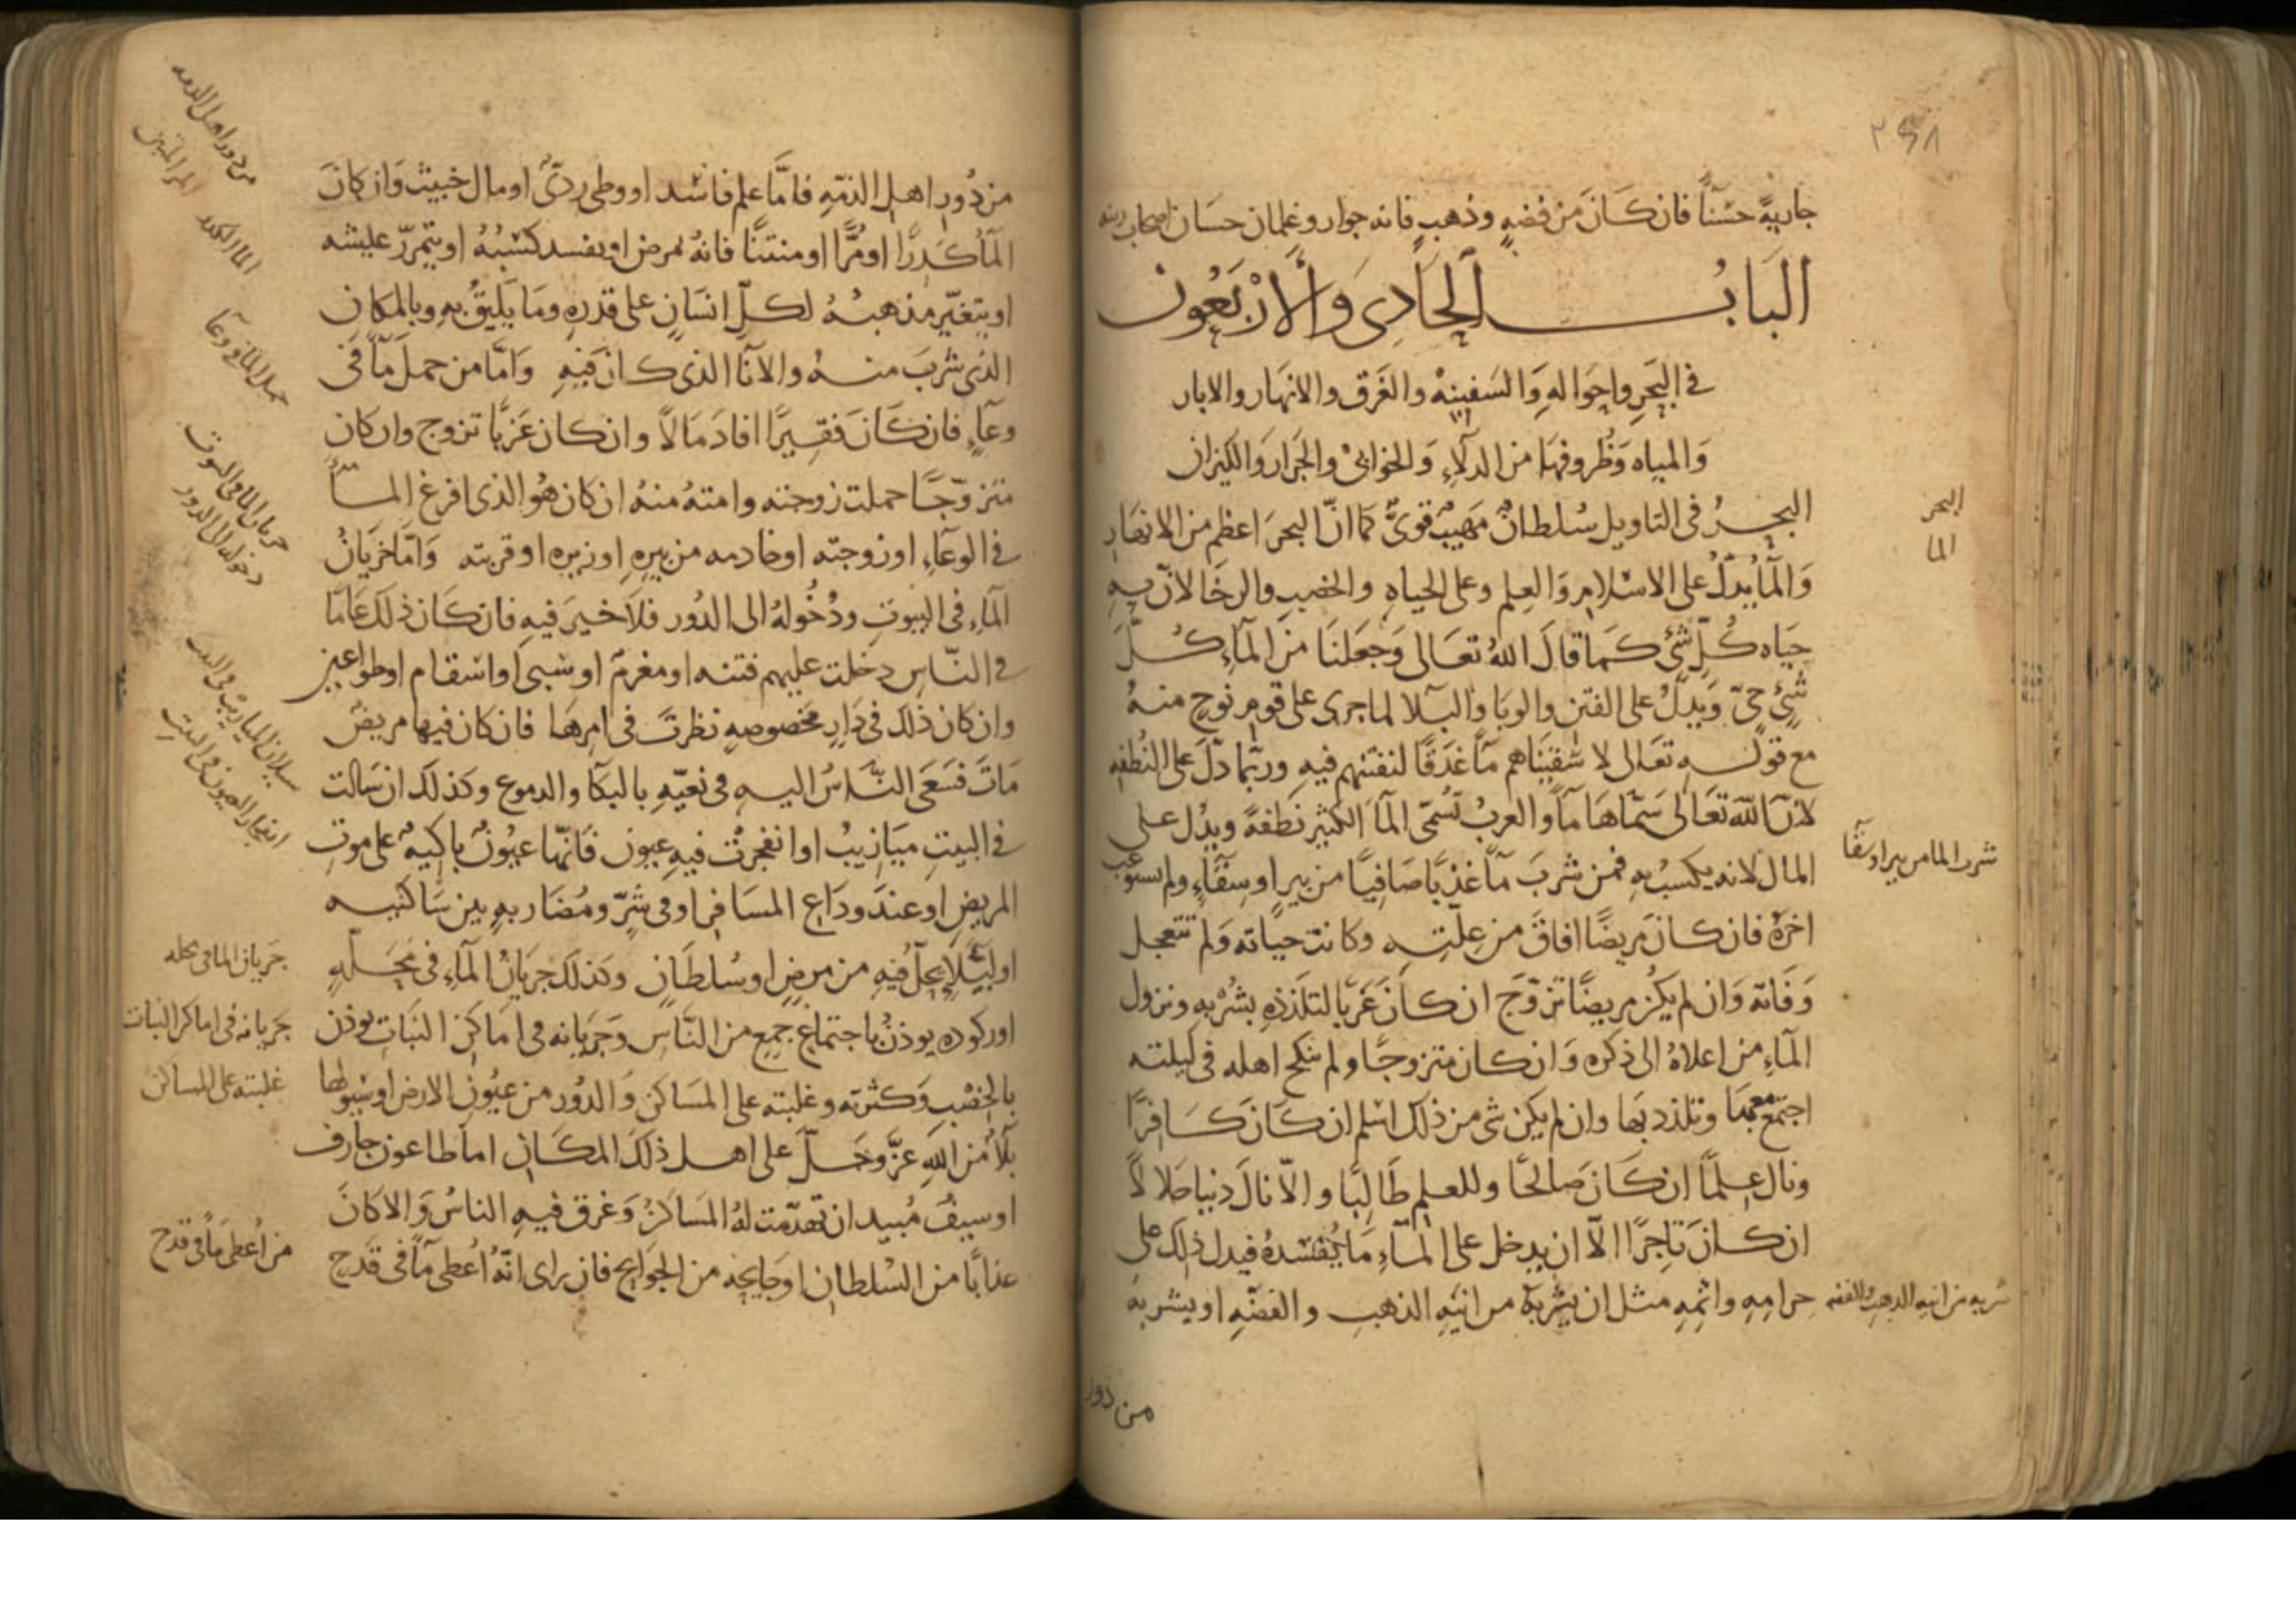 ٢٩٨
جاريةً حسَناً فان كَانَ من فضهٍ وذهبٍ فانه جوار وغلمان حسَان اصحاب دينه
البَابُ الحَادِى وَالأرْبَعُون
فى البَحرِ واحوَالهِ وَالسَفينهْ والغَرق والانهَار والابار
وَالمياه وَظُروفهَا من الدلآءِ وَالخوابىْ والجَرار وَالكيزان
البحرُ فى التاويل سُلطانٌ مَهيبٌ قوىٌّ كما انّ البحرَ اعظم من الانهَار
وَالمآ يُدلّ على الاسْلام وَالعِلم وعلى الحياهِ والخصب والرخَا لانّ به
حيَاه كُلّ شئٍ كمَا قالَ اللهُ تعَالى وَجَعَلنَا منَ المآءِ كُلَّ
شئٍ حىّ وَيدلُّ على الفتَن والوبَا والبَلا لما جرى على قوم نوحٍ منهُ
مع قوله تعَالى لاسْقينَاهم مآً غدَقًا لنفتنهم فيهِ وربّما دَلّ على النُطفهِ
لانّ اللهَ تعَالى سَمّاهَا مآً والعربُ تُسَمّى المآ الكثير نُطفهً ويدُل على
المال لانه يكسبُ بهِ فمن شربَ مآً عَذبًا صَافيًا من بيرٍ او سِقَاءٍ ولم يستوعب
اخرَهُ فان كانَ مَريضًا افاقَ من عِلتهِ وكانت حيَاته وَلم تتعجل
وَفاته وَان لم يكن مريضًا تزوّجَ ان كانَ عَزبًا لتلذذهِ بشُربه ونزول
المآءِ من اعلاهُ الى ذكره وَان كان متزوجًا ولم ينكح اهله فى ليلته
اجتمع معهَا وتلذد بهَا وان لم يكن شى من ذلك اسْلم ان كَانَ كَافرًا
ونال عِلمًا ان كَانَ صَالحًا وللعلم طَالبًا والاّ نالَ دنيا حَلالاً
ان كانَ تَاجرًا الاّ ان يدخل على المآءِ مَا يُفسدهُ فيدل ذلك على
حرامِهِ واثمِهِ مثل ان يشربهُ من انيَهِ الذهبِ والفضّهِ او يشربهُ
من دور
البحر
الما
شرب الما من بير او سقآ
شربه من انيه الدهب والفضه
من دُور اهل الذمّهِ فامَّا علم فاسْد او وطى ردىّ او مال خبيث وَان كانَ
المآ كَدرًا او مُرًّا او منتنًا فانهُ يمرض او يفسد كسْبُهُ او يتمرّر عليشه
او يتغيّر مذهبُهُ لكلّ انسَانٍ على قدرهِ ومَا يَليقُ بهِ وبالمكان
الذى شربَ منهُ والانآ الذى كانَ فيهِ وَامّا من حملَ مآً فى
وعآءٍ فان كَانَ فقيرًا افادَ مَالاً وان كان عَزبًا تزوج وان كان
متزوّجًا حملت زوجته وامتهُ منهُ ان كان هُو الذى افرغ المآ
فى الوعَآءِ او زوجته او خادمه من بيرهِ او زيره او قربته وَامّا جَريَانُ
المآءِ فى البيوتِ ودُخُولهُ الى الدُور فلاَ خيرَ فيهِ فان كَان ذلكَ عَامًا
فى النّاسِ دخلت عليهم فتنه او مغرمٌ او سَبى او اسْقام او طواعين
وان كان ذلك فى دَارٍ مخصوصهٍ نظرتَ فى امرهَا فان كان فيها مريضٌ
مَاتَ فَسَعَى النَّاسُ اليهِ فى نعيّهِ بالبكآ والدموع وكذلك ان سَالت
فى البيتِ ميَازيبُ او انفجرَتْ فيهِ عيون فَانّها عيُونٌ باكيهٌ على موتِ
المريض او عندَ ودَاع المسَافر او فى شرٍّ ومُضَاربهٍ بين سَاكنيه
او لبَلاءٍ يحلّ فيهِ من مرضٍ او سُلطَانٍ وكذلك جرَيانُ المآءِ فى محَلّهٍ
او ركوده يوذنُ باجتماعِ جمعٍ من النّاسِ وَجَريَانه فى امَاكن النبَاتِ يوذن
بالخصْبِ وَكثرته وغلبته على المسَاكن وَالدوُر من عيُون الارض او سُيُولها
بَلاٌ من اللهِ عزَّ وجَلَّ على اهل ذلكَ المكَان اما طاعون جارف
او سيفٌ مُبيد ان تهدّمت لهُ المسَاكنُ وَغرق فيهِ الناسُ وَالا كانَ
عذابًا من السُلطان او جَايحه من الجوَايح فان راى انّهُ اُعطى مآً فى قدَح
من دور اهل الذمه
المر المنتن
الما الكدر
حمل الما فى وعآ
جريان الما فى البيوت
دخوله الى الدور
سيلان الميازيب فى البيت
انفجار العيون فى البيت
جَريان الما فى محله
جَريانه فى اماكن النبات
غلبته على المساكن
من اُعطى مآً فى قدح